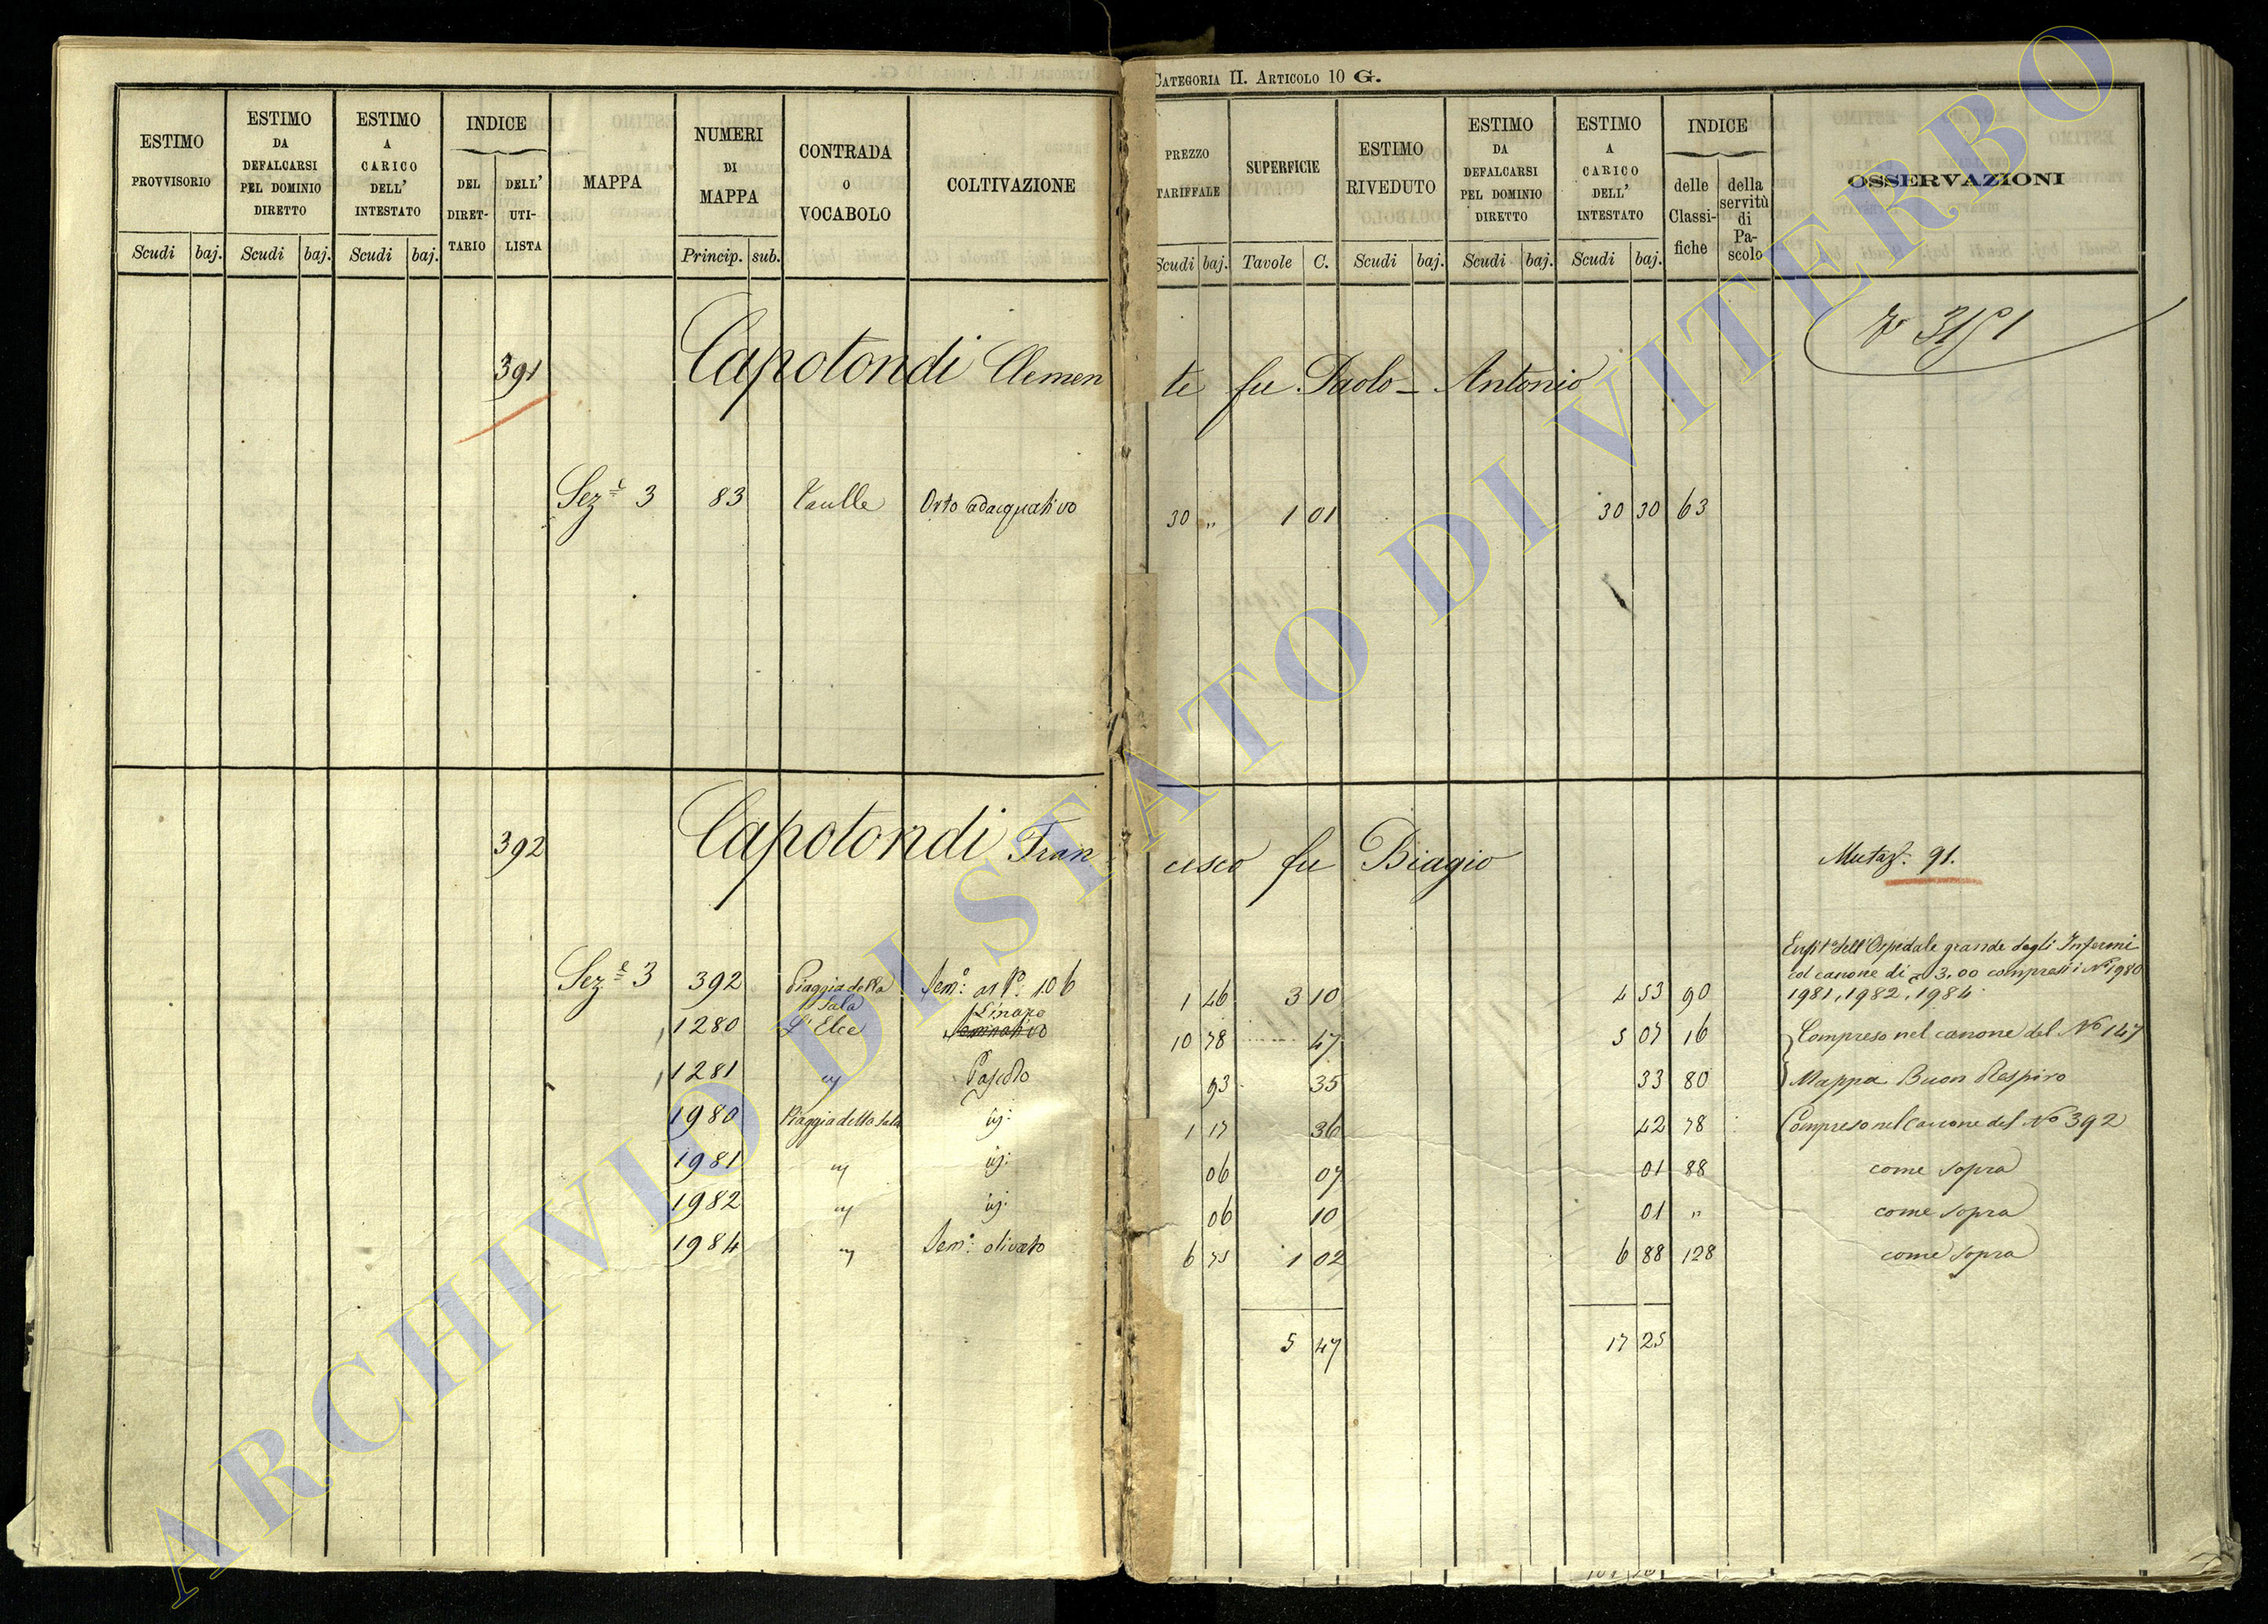 CATEGORIA II. ARTICOLO 10 G.
ESTIMO PROVVISORIO
ESTIMO DA DEFALCARSI PEL DOMINIO DIRETTO
ESTIMO A CARICO DELL' INTESTATO
INDICE
DEL DIRET- TARIO
DELL' UTI- LISTA
MAPPA
NUMERI DI MAPPA
CONTRADA O VOCABOLO
COLTIVAZIONE
PREZZO TARIFFALE
SUPERFICIE
ESTIMO RIVEDUTO
ESTIMO DA DEFALCARSI PEL DOMINIO DIRETTO
ESTIMO A CARICO DELL' INTESTATO
INDICE
delle Classi- fiche
della servitù di Pa- scolo
OSSERVAZIONI
Scudi baj. Scudi baj. Scudi baj. Princip. sub. Scudi baj. Tavole C. Scudi baj. Scudi baj. Scudi baj.
391 Capotondi Clemen te fu Paolo - Antonio
Sez.e 3 83 Orto adacquativo 30 " 1 01 30 30 63
392 Capotondi Fran cesco fu Biagio Mutaz. 91.
Enfit. dell'Ospedale grande degli Infermi
col canone di 3,00 compresi i No 1980
Sez.e 3 392 Piaggia della Sala Sem. 106 1 46 3 10 4 53 90 1981, 1982, 1984.
1280 L'Elce Seminativo 10 78 47 5 07 16 Compreso nel canone del No 147
1281 " Pascolo 93 35 33 80 Mappa Buon Respiro
1980 Piaggia della Sala 1 17 36 42 78 Compreso nel Canone del No 392
1981 " 06 07 01 88 come sopra
1982 " 06 10 01 " come sopra
1984 " Sem. olivato 6 75 1 02 6 88 128 come sopra
5 47 17 25
ARCHIVIO DI STATO DI VITERBO